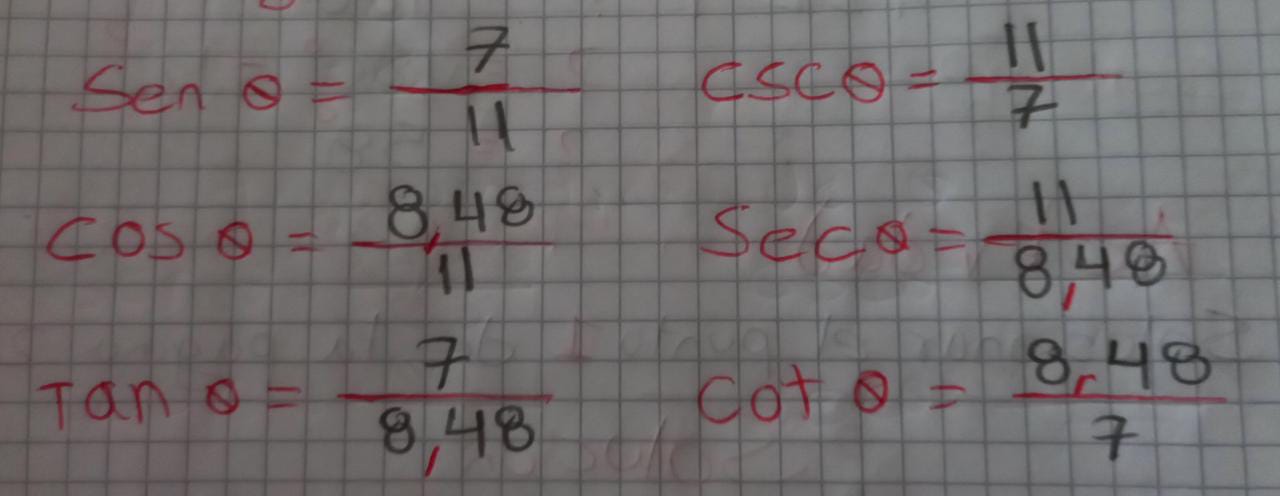 Sen θ = 7/11 csc θ = 11/7
cos θ = 8,48/11 Sec θ = 11/8,48
Tan θ = 7/8,48 cot θ = 8,48/7